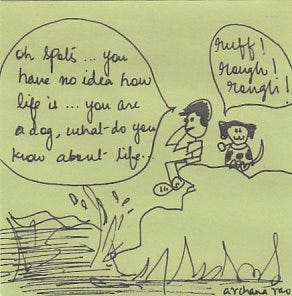 oh spots ... you
have no idea how
life is ... you are
a dog, what do you
know about life...
ruff!
rough!
rough!
archana rao